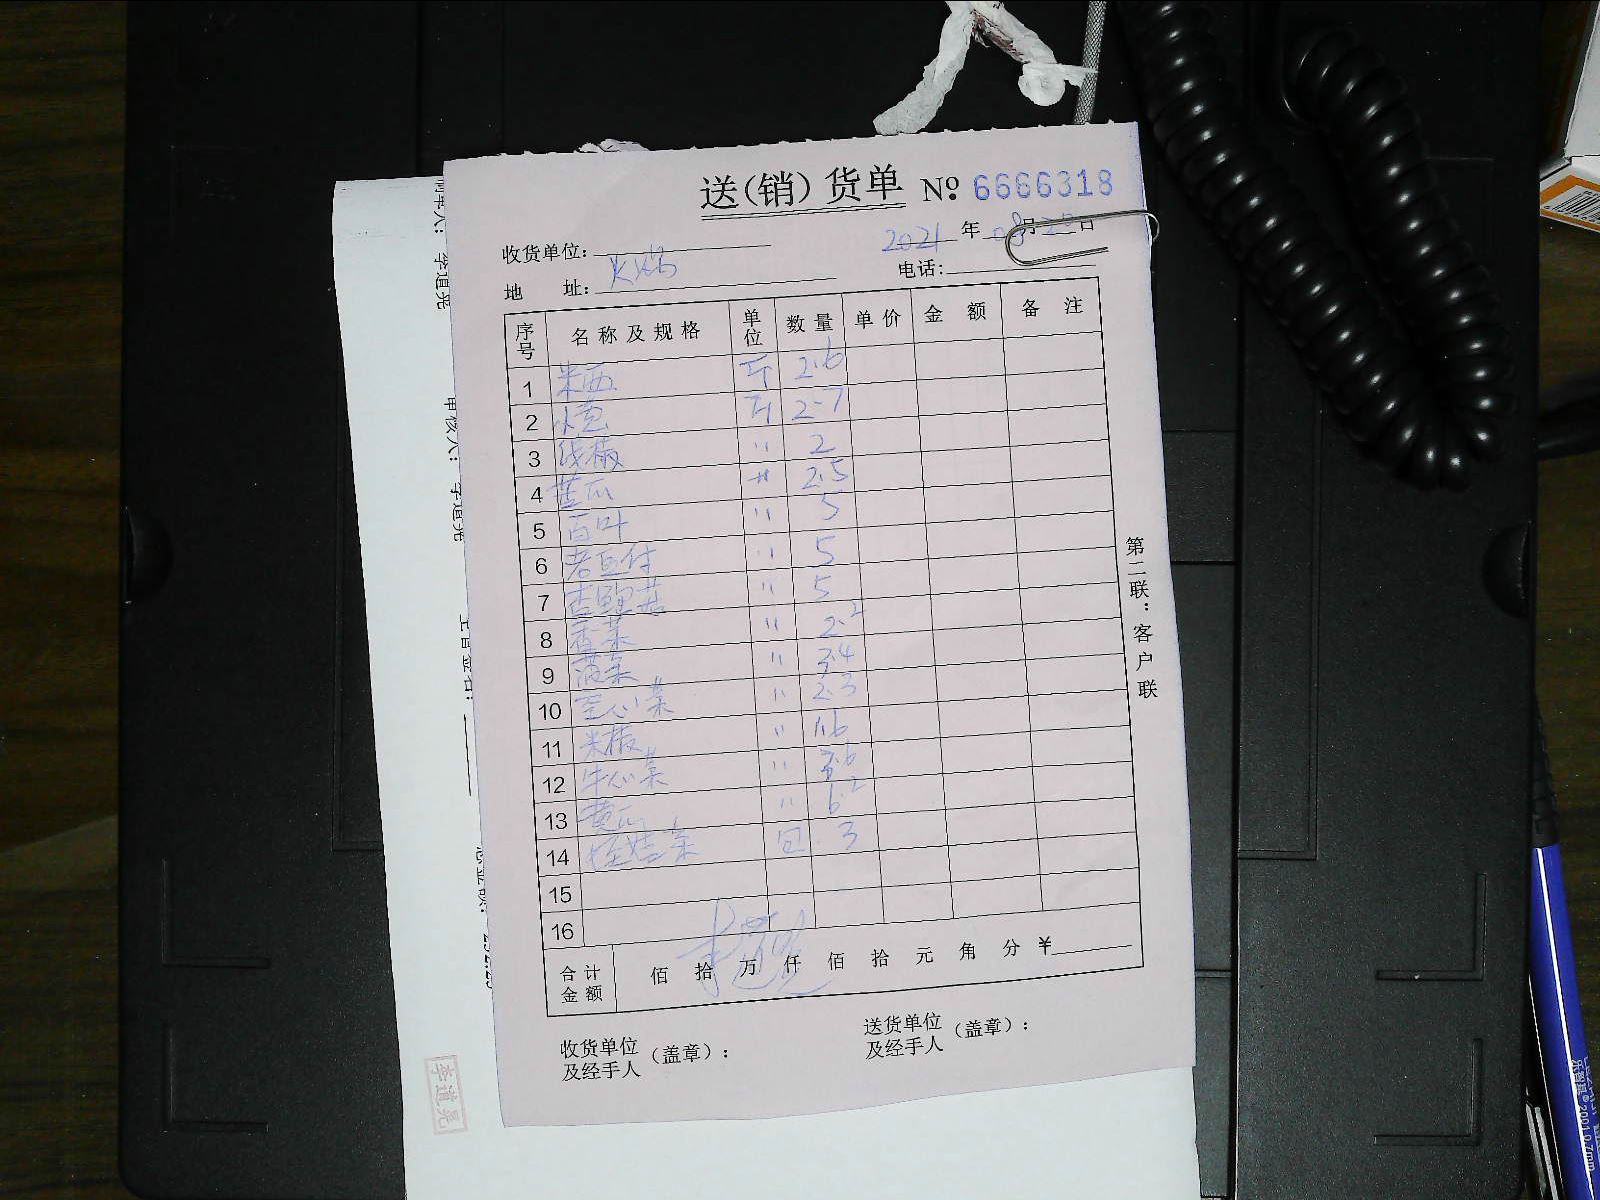 送(销)货单 No 6666318
收货单位: 2021 年 08 月 20 日
地 址: 火锅 电话:
序号 名称及规格 单位 数量 单价 金额 备注
1 米西 斤 2.6
2 大葱 斤 2.7
3 线椒 〃 2
4 黄瓜 〃 2.5
5 百叶 〃 5
6 老豆付 〃 5
7 杏鲍菇 〃 5
8 香菜 〃 2.2
9 菠菜 〃 3.4
10 空心菜 〃 2.3
11 米椒 〃 1.6
12 牛心菜 〃 3.6
13 黄瓜 〃 6.2
14 娃娃菜 包 3
15
16
合计金额 佰 拾 万 仟 佰 拾 元 角 分 ¥
收货单位及经手人 (盖章):
送货单位及经手人 (盖章):
第二联:客户联
李道尧